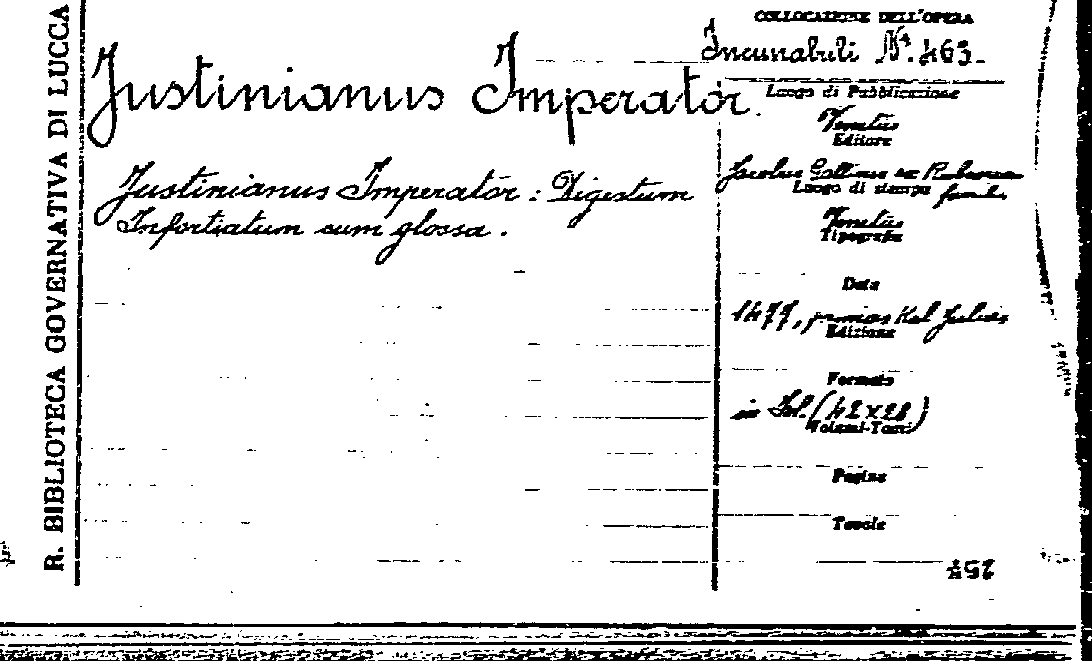 R. BIBLIOTECA GOVERNATIVA DI LUCCA
Justinianus Imperator.
Justinianus Imperator : Digestum
Infortiatum cum glossa .
COLLOCAZIONE DELL'OPERA
Incunabuli N.º 463.
Luogo di Pubblicazione
Venetiis
Editore
Jacobus Gallicus ex Rubeorum
famil.
Luogo di stampa
Venetiis
Tipografia
Data
1477, Kal Julias
Edizione
Formato
in fol. (42x28)
Volumi-Tomi
Pagine
Tavole